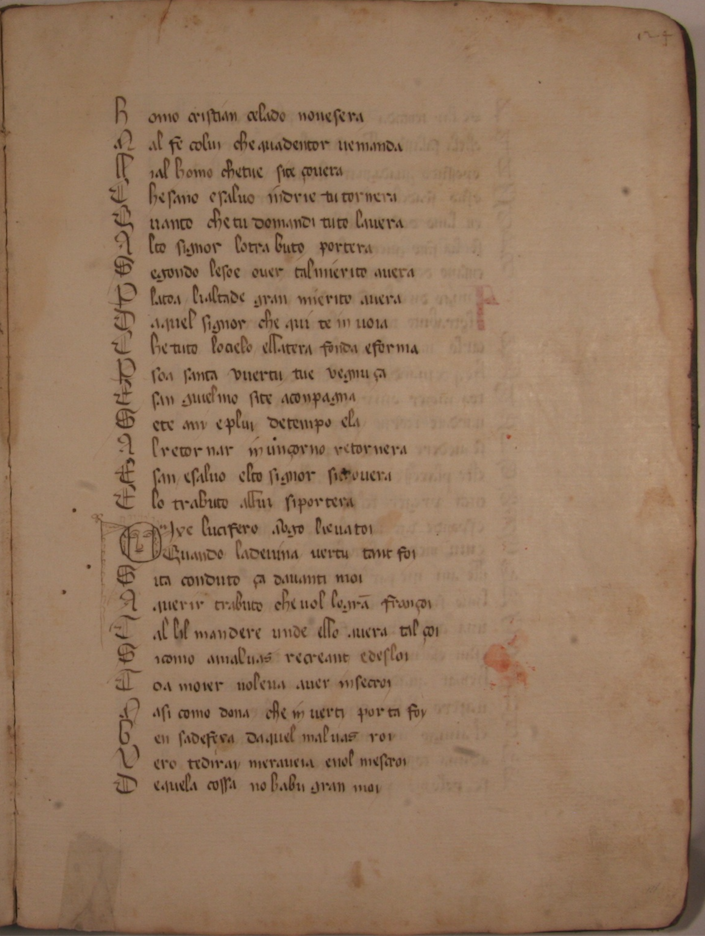 124
H omo cristian celado no ve sera
M al fe colui che qua dentor ve manda
Q ual homo che tue site covera
C he sano e salvo indrie tu tornera
Q uanto che tu domandi tuto l avera
A lto signor lo trabuto portera
S egondo le soe over tal merito avera
D la toa lialtade gran merito avera
D a quel signor che qui te in voia
C he tuto lo cielo e la tera fonda e forma
E soa santa vertu tue vegnu ça
E san guielmo si te aconpagna
S ete ani e plui de tempo ela
A l retornar in un çorno retornera
E san e salvo el to signor si trovera
E lo trabuto a lui si portera
Dixe lucifero a ugo lievatoi
Quando la devina vertu tant foi
S i ta conduto ça davanti moi
A querir trabuto che vol lo grã françoi
S al li l mandere unde ello avera tal çoi
S i como a malvas recreant e desloi
C oa moier voleva aver in secroi
M asi como dona che in verti porta foi
B en sa defexa da quel malvas roi
V ero te dirai meraveia e nol mescroi
D e quela cossa no habu gran moi